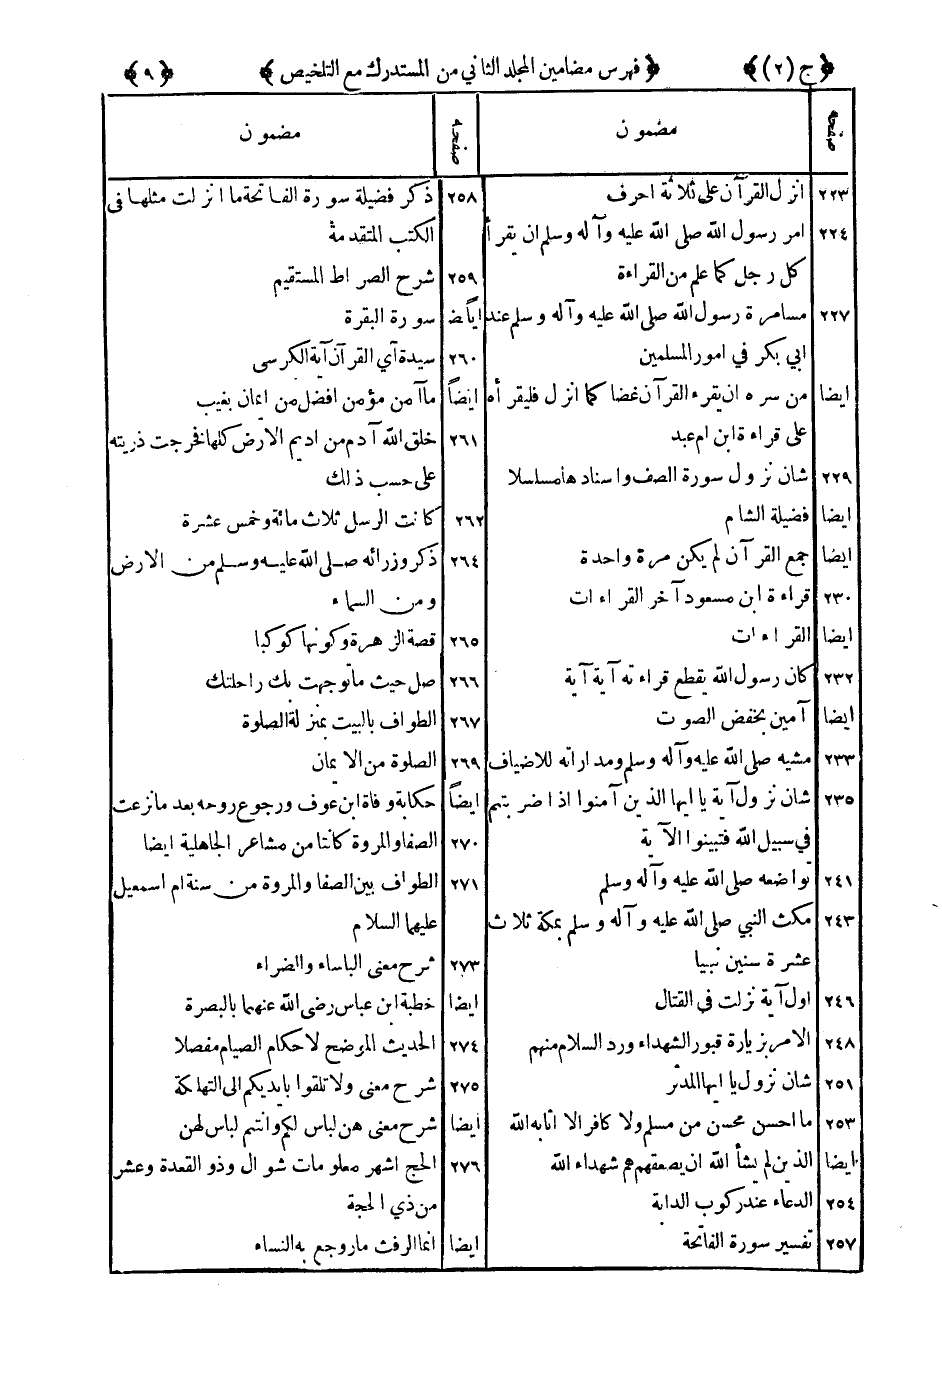 ﴿ ج (٢) ﴾ ﴿ فهرس مضامين المجلد الثاني من المستدرك مع التلخيص ﴾ ﴿ ٩ ﴾
صفحه مضمون
٢٢٣ انزل القرآن على ثلاثة احرف
٢٢٤ امر رسول الله صلى الله عليه وآله وسلم ان يقرأ
كل رجل كما علم من القراءة
٢٢٧ مسامرة رسول الله صلى الله عليه وآله وسلم عند
ابي بكر في امور المسلمين
ايضا من سره ان يقرء القرآن غضا كما انزل فليقرأه
على قراءة ابن ام عبد
٢٢٩ شان نزول سورة الصف واسنادها مسلسلا
ايضا فضيلة الشام
ايضا جمع القرآن لم يكن مرة واحدة
٢٣٠ قراءة ابن مسعود آخر القراءات
ايضا القراءات
٢٣٢ كان رسول الله يقطع قراءته آية آية
ايضا آمين بخفض الصوت
٢٣٣ مشيه صلى الله عليه وآله وسلم ومداراته للاضياف
٢٣٥ شان نزول آية يا ايها الذين آمنوا اذا ضربتم
في سبيل الله فتبينوا الآية
٢٤١ تواضعه صلى الله عليه وآله وسلم
٢٤٣ مكث النبي صلى الله عليه وآله وسلم بمكة ثلاث
عشرة سنين نبيا
٢٤٦ اول آية نزلت في القتال
٢٤٨ الامر بزيارة قبور الشهداء ورد السلام منهم
٢٥١ شان نزول يا ايها المدثر
٢٥٣ ما احسن محسن من مسلم ولا كافر الا اثابه الله
ايضا الذين لم يشأ الله ان يصعقهم هم شهداء الله
٢٥٤ الدعاء عند ركوب الدابة
٢٥٧ تفسير سورة الفاتحة
صفحه مضمون
٢٥٨ ذكر فضيلة سورة الفاتحة ما انزلت مثلها في
الكتب المتقدمة
٢٥٩ شرح الصراط المستقيم
ايضاً سورة البقرة
٢٦٠ سيدة آي القرآن آية الكرسى
ايضاً ما آمن مؤمن افضل من ايمان بغيب
٢٦١ خلق الله آدم من اديم الارض كلها فخرجت ذريته
على حسب ذلك
٢٦٢ كانت الرسل ثلاث مائة وخمس عشرة
٢٦٤ ذكر وزرائه صلى الله عليه وسلم من الارض
ومن السماء
٢٦٥ قصة الزهرة وكونها كوكبا
٢٦٦ صل حيث ما توجهت بك راحلتك
٢٦٧ الطواف بالبيت بمنزلة الصلوة
٢٦٩ الصلوة من الايمان
ايضاً حكاية وفاة ابن عوف ورجوع روحه بعد ما نزعت
٢٧٠ الصفا والمروة كانتا من مشاعر الجاهلية ايضا
٢٧١ الطواف بين الصفا والمروة من سنة ام اسمعيل
عليهما السلام
٢٧٣ شرح معنى الباساء والضراء
ايضا خطبة ابن عباس رضى الله عنهما بالبصرة
٢٧٤ الحديث الموضح لاحكام الصيام مفصلا
٢٧٥ شرح معنى ولا تلقوا بايديكم الى التهلكة
ايضا شرح معنى هن لباس لكم وانتم لباس لهن
٢٧٦ الحج اشهر معلومات شوال وذو القعدة وعشر
من ذي الحجة
ايضا انما الرفث ما روجع به النساء